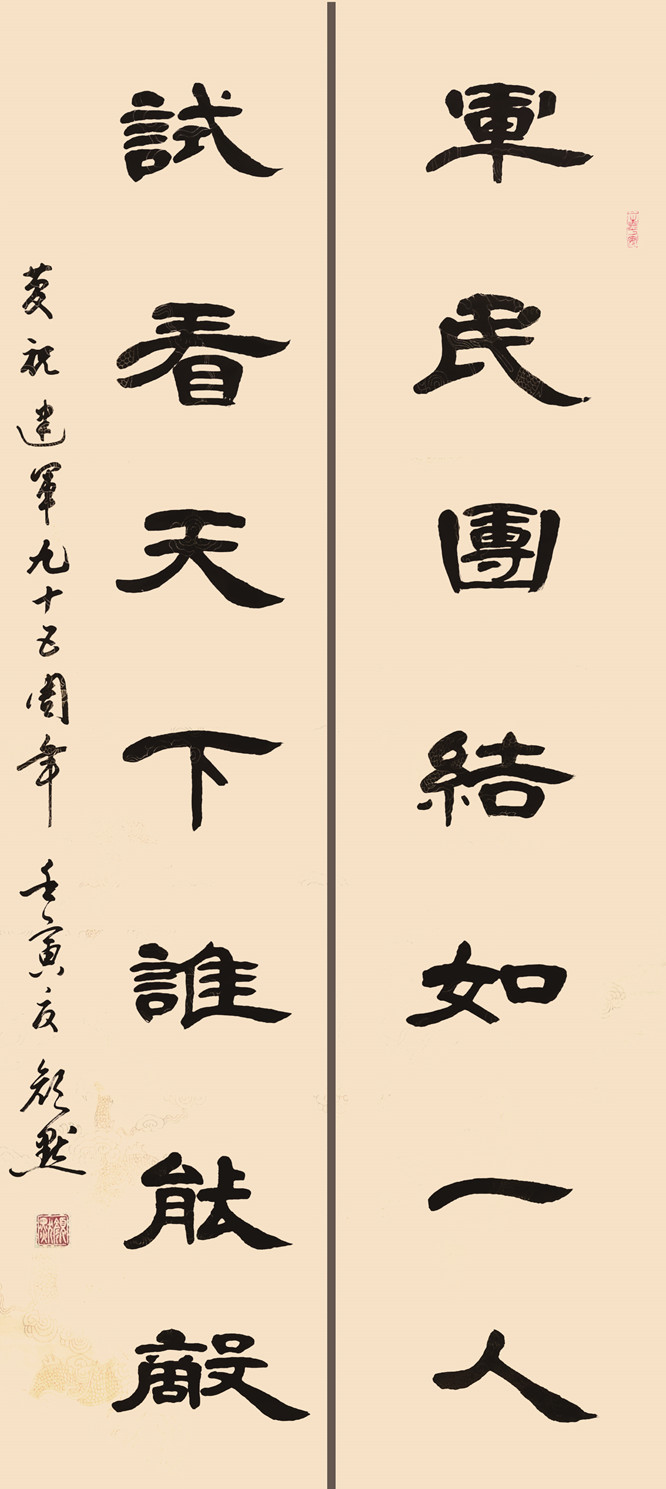 軍民團結如一人
試看天下誰能敵
慶祝建軍九十五周年 壬寅夏 顏默